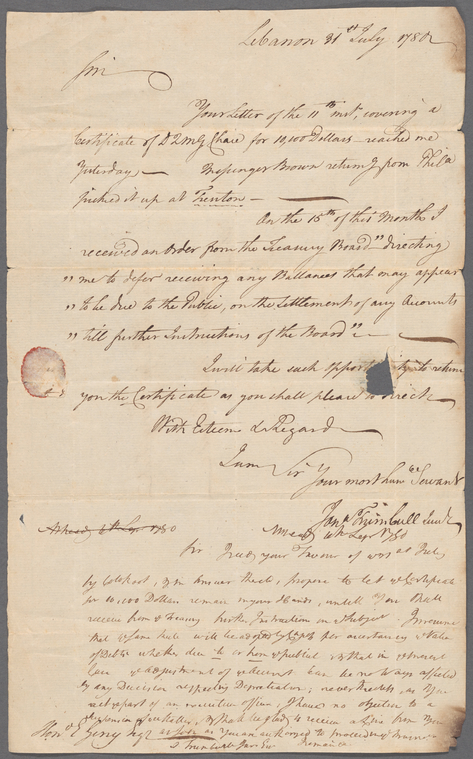 Lebanon 31st July 1780
Sir
Your Letter of the 11th inst, covering a
Certificate of D2MG Chace for 10,100 Dollars - reached me
Yesterday, — Messenger Brown returng from Phila
picked it up at Trenton —
On the 15th of this Month I
received an Order from the Treasury Board "directing
" me to defer receiving any Ballances that may appear
" to be due to the Public, on the Settlement of any Accounts
" 'till further Instructions of the Board" —
I will take such opportunity to return
you the Certificate as you shall please to direct
With Esteem & Regard
I am Sir Your most hume Servant
Jona Trumbull Junr
Sir I recd your favour of
by , & in Answer thereto, propose to let ye Certificate
for 10,100 Dollars remain in your Hands, untill You shall
receive from ye Treasury further Instructions on ye Subject
that ye same rule will be adopted
of Debts whether due to or from ye public, & that in
Case ye adjustment of ye Account can be no Ways affected
by any Decision respecting Depreciation; nevertheless, as You
act as part of an executive officer, I have no objection to a
& shall be glad to receive a line from You
as soon as You are authorized to proceed
Honl E Gerry Esqr
J Trumbull Junr Esqr